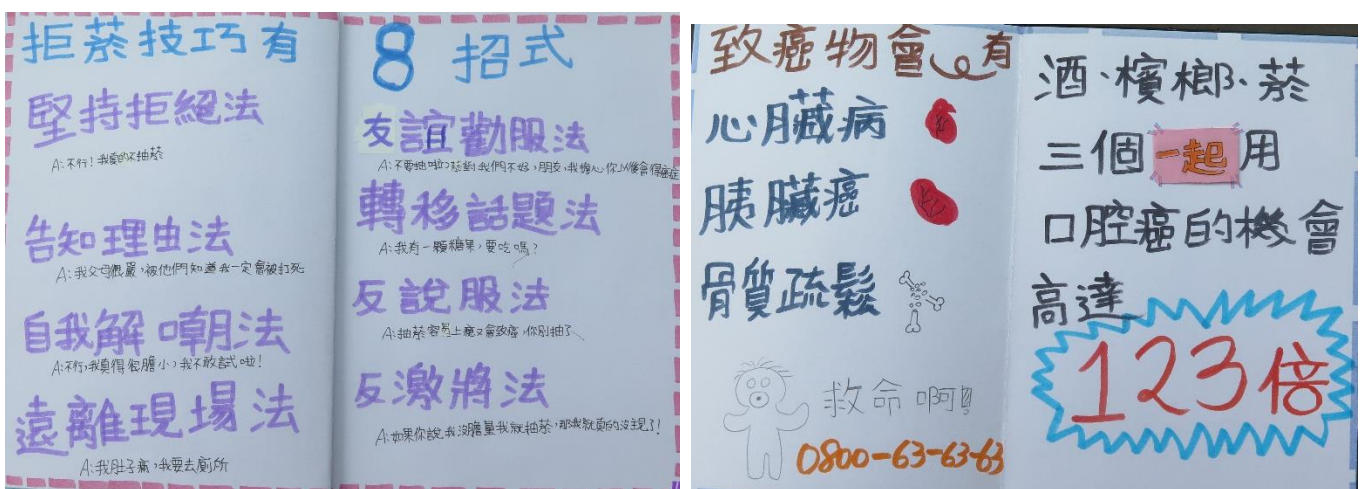 拒菸技巧有
堅持拒絕法
A:不行!我真的不抽菸
告知理由法
A:我父母很嚴,被他們知道我一定會被打死
自我解嘲法
A:不行,我真得很膽小,我不敢試啦!
遠離現場法
A:我肚子痛,我要去廁所
8招式
友誼勸服法
A:不要抽啦,菸對我們不好,朋友,我擔心你以後會得癌症
轉移話題法
A:我有一顆糖果,要吃嗎?
反說服法
A:抽菸容易上癮又會致癌,你別抽了
反激將法
A:如果你說我沒膽量我就抽菸,那我就真的沒主見了!
致癌物會有
心臟病
胰臟癌
骨質疏鬆
救命啊!!
0800-63-63-63
酒、檳榔、菸
三個一起用
口腔癌的機會
高達
123倍